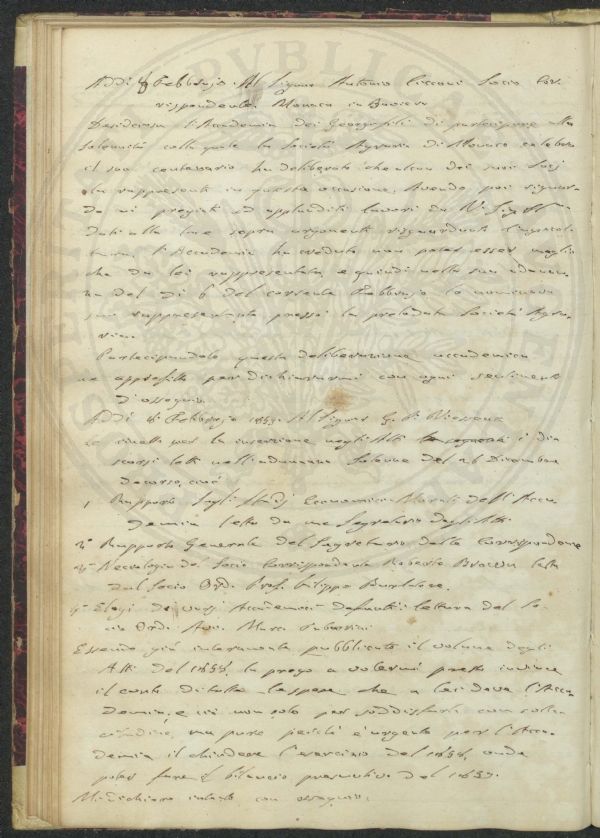 Addì 8 Febbrajo. Al Signor Antonio Ciccani Socio Cor-
rispondente. Monaco in Baviera
Desiderosa l'Accademia dei Georgofili di partecipare alla
solennità colla quale la Società Agraria di Monaco celebra
il suo centenario ha deliberato che alcun dei suoi Socj
la rappresenti in questa occasione. Avendo poi riguar-
do ai pregiati ed applauditi lavori da
dati alla luce sopra argomenti risguardanti
l'Accademia ha creduto non poter esser meglio
che da lei rappresentata, e quindi nella sua adunan-
za del dì 6 del corrente Febbrajo la nominava
suo rappresentante presso la prelodata Società Agra-
ria.
Partecipandole questa deliberazione accademica
me approfitto per dichiararmi con ogni sentimento
d'ossequio
Addì 8 Febbrajo 1859. Al Signor G. P. Vieusseux
Le rimetto per la inserzione negli Atti i di-
scorsi letti nell'adunanza Solenne del 26 Dicembre
decorso, cioè
1 Rapporto sugli Studj Economico-Morali dell'Acca-
demia letto da me Segretario degli Atti
2° Rapporto Generale del Segretario delle Corrispondenze
3° Necrologia del Socio Corrispondente Roberto Brown letta
dal Socio Ord. Prof. Filippo Parlatore.
4° Elogj dei Accademici defunti: lettura del So-
cio Ord. Avv. Marco Tabarrini
Essendo già interamente pubblicato il volume degli
Atti del 1858, la prego a volermi presto inviare
il conto di tutte le spese che a lei deve l'Acca-
demia; e ciò non solo per soddisfarla con solle-
citudine, ma pure perchè è urgente per l'Acca-
demia il chiudere l'esercizio del 1858, onde
poter fare il bilancio preventivo del 1859.
Mi dichiaro intanto con ossequio.